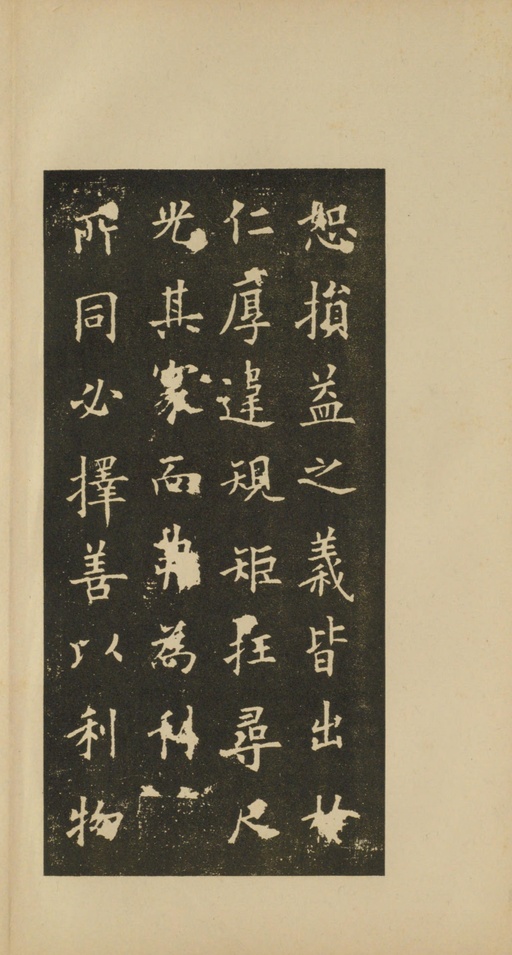 恕損益之義皆出於
仁厚違規矩枉尋尺
光其家而為
所同必擇善以利物